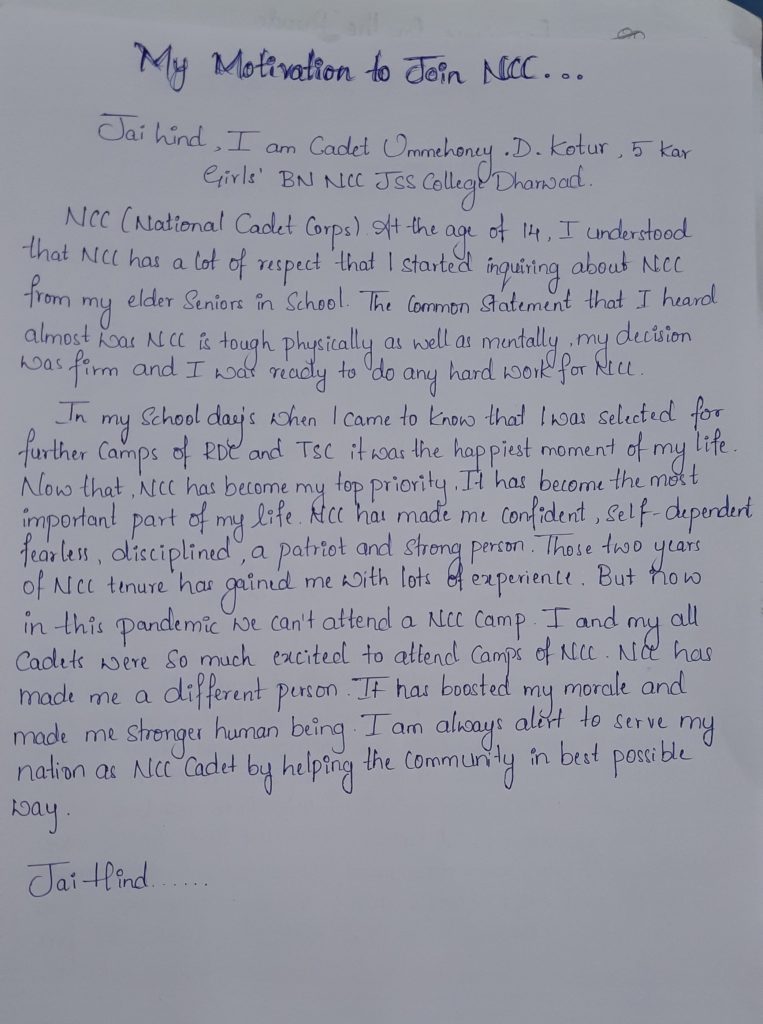 My Motivation to Join NCC...
Jai hind, I am Cadet Ummehoney .D. Kotur, 5 Kar
Girls' BN NCC JSS College Dharwad.
NCC (National Cadet Corps). At the age of 14, I understood
that NCC has a lot of respect that I started inquiring about NCC
from my elder Seniors in School. The Common Statement that I heard
almost was NCC is tough physically as well as mentally, my decision
was firm and I was ready to do any hard work for NCC.
In my School days when I came to know that I was selected for
further Camps of RDC and TSC it was the happiest moment of my life.
Now that, NCC has become my top priority. It has become the most
important part of my life. NCC has made me confident, Self-dependent
fearless, disciplined, a patriot and strong person. Those two years
of NCC tenure has gained me with lots of experience. But now
in this pandemic we can't attend a NCC Camp. I and my all
Cadets were so much excited to attend Camps of NCC. NCC has
made me a different person. It has boosted my morale and
made me stronger human being. I am always alert to serve my
nation as NCC Cadet by helping the Community in best possible
way.
Jai Hind......